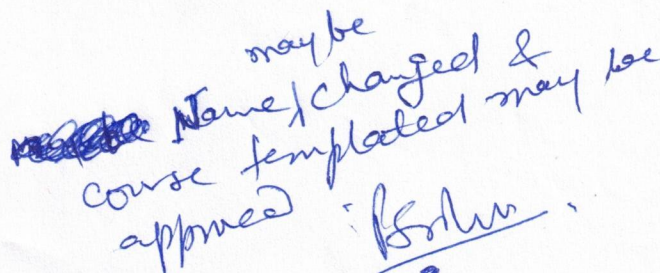 may be
Name changed &
course templated may be
approved